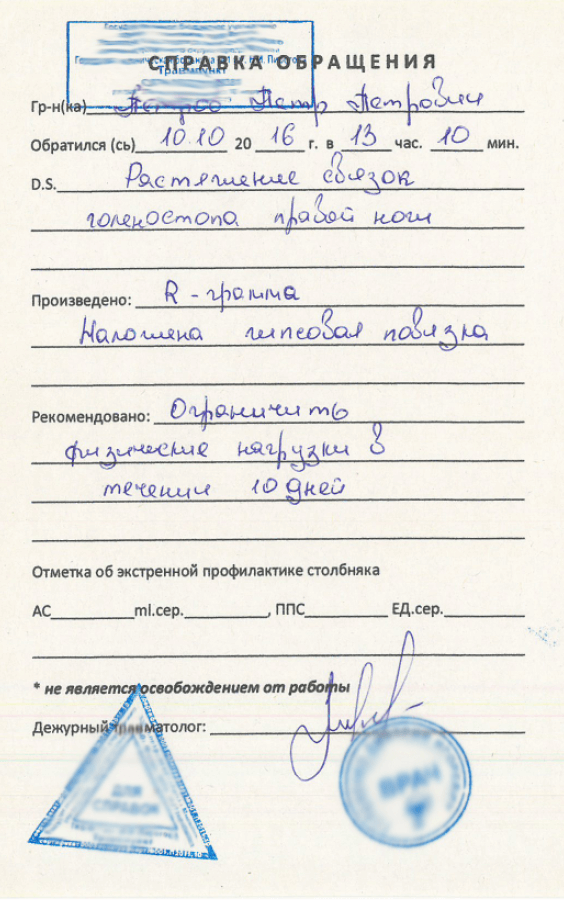 Травмпункт
СПРАВКА ОБРАЩЕНИЯ
Гр-н(ка) Петров Петр Петрович
Обратился (сь) 10.10 20 16 г. в 13 час. 10 мин.
D.S. Растяжение связок
голеностопа правой ноги
Произведено: R - грамма
Наложена гипсовая повязка
Рекомендовано: Ограничить
физические нагрузки в
течении 10 дней
Отметка об экстренной профилактике столбняка
АС ml.сер. , ППС ЕД.сер.
* не является освобождением от работы
Дежурный травматолог:
ДЛЯ
СПРАВОК
ВРАЧ